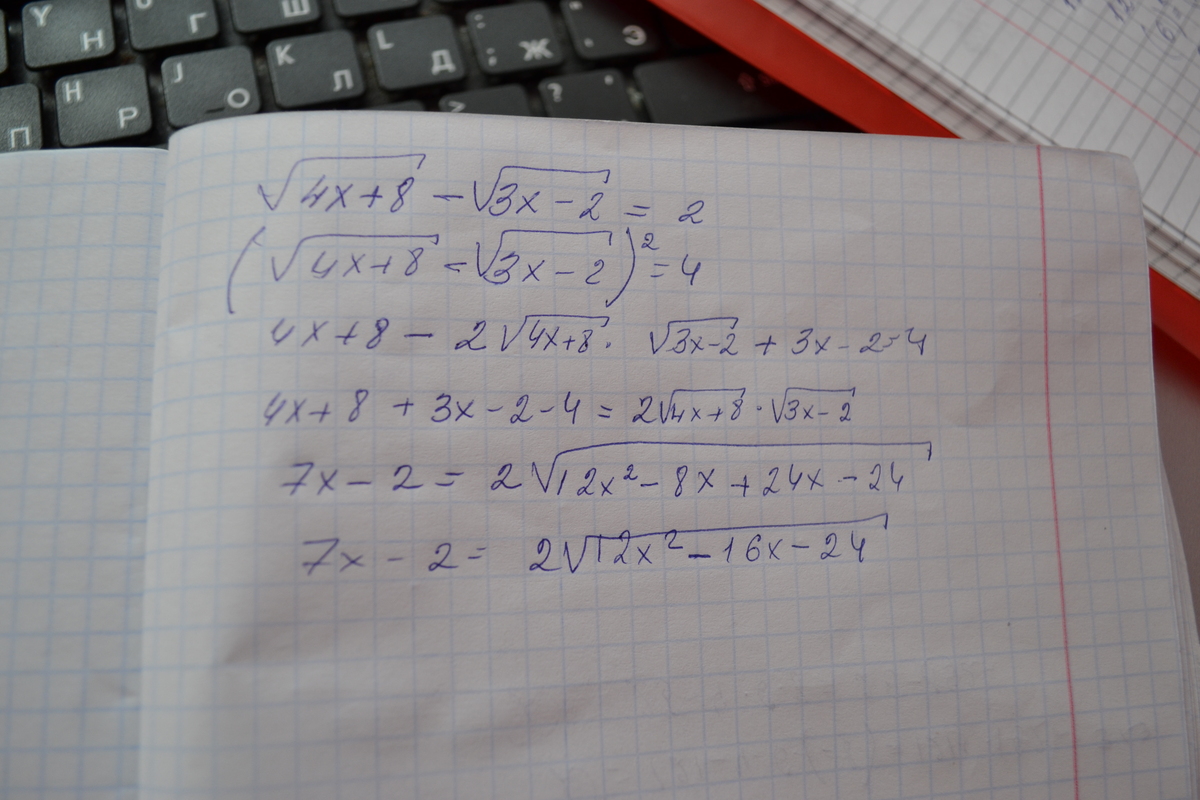 Y Н Г Ш
Н Р J О K Л L Д : ; Ж Э
П > ?
√(4x+8) − √(3x−2) = 2
(√(4x+8) − √(3x−2))² = 4
4x+8 − 2√(4x+8) · √(3x−2) + 3x − 2 = 4
4x+8 + 3x−2−4 = 2√(4x+8) · √(3x−2)
7x − 2 = 2√(12x² − 8x + 24x − 24)
7x − 2 = 2√(12x² − 16x − 24)